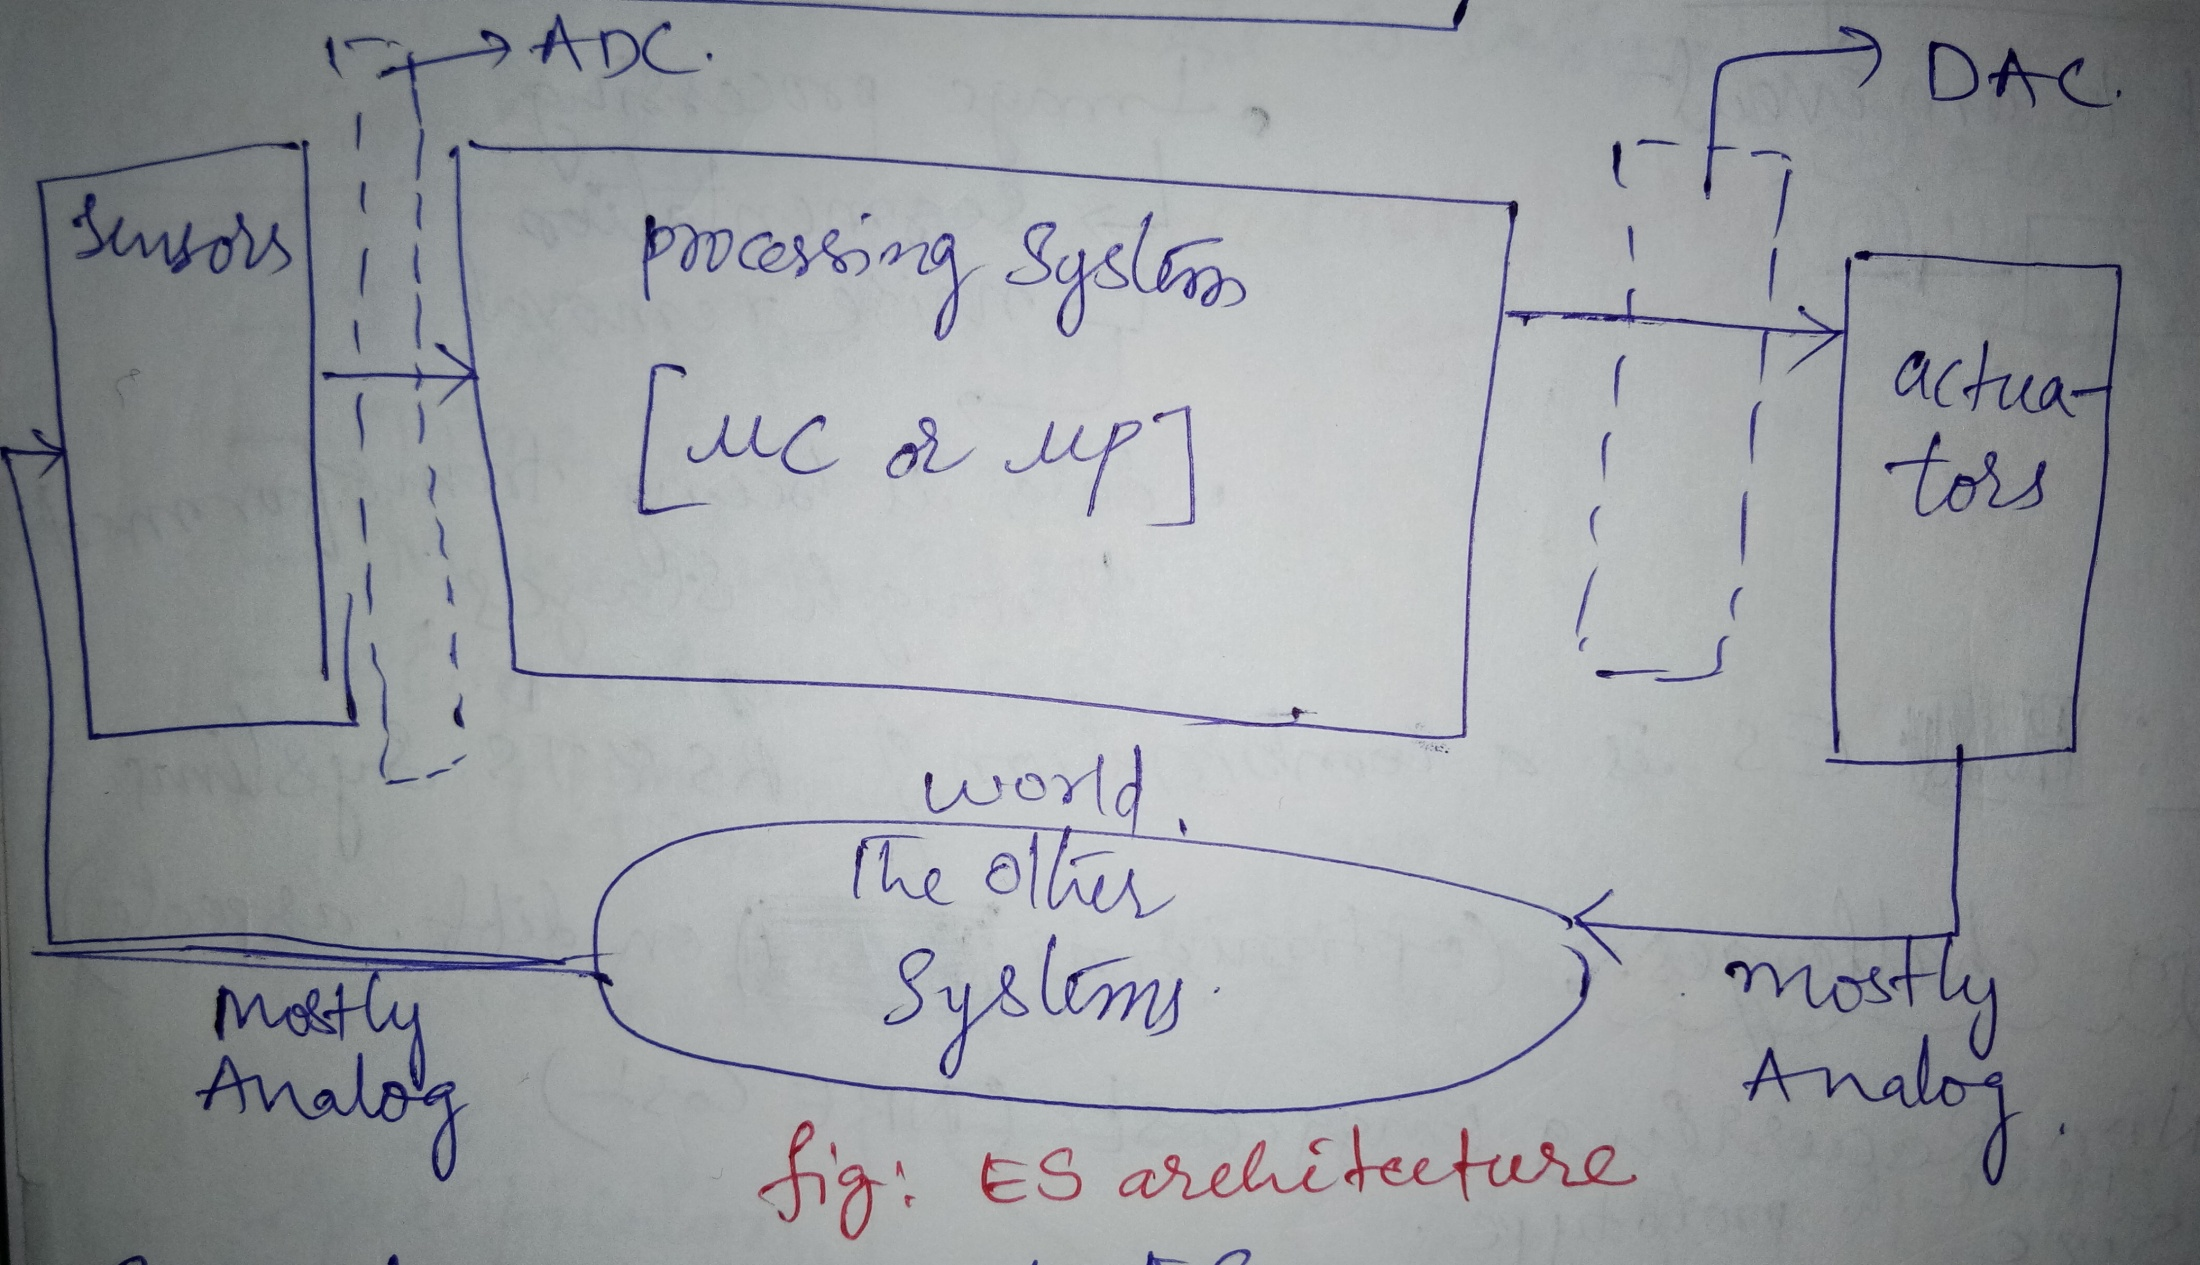 ADC.
DAC.
Sensors
processing Systems
[μC or μP]
actua-
tors
world.
The Other
Systems.
Mostly
Analog
Mostly
Analog.
fig: ES architecture